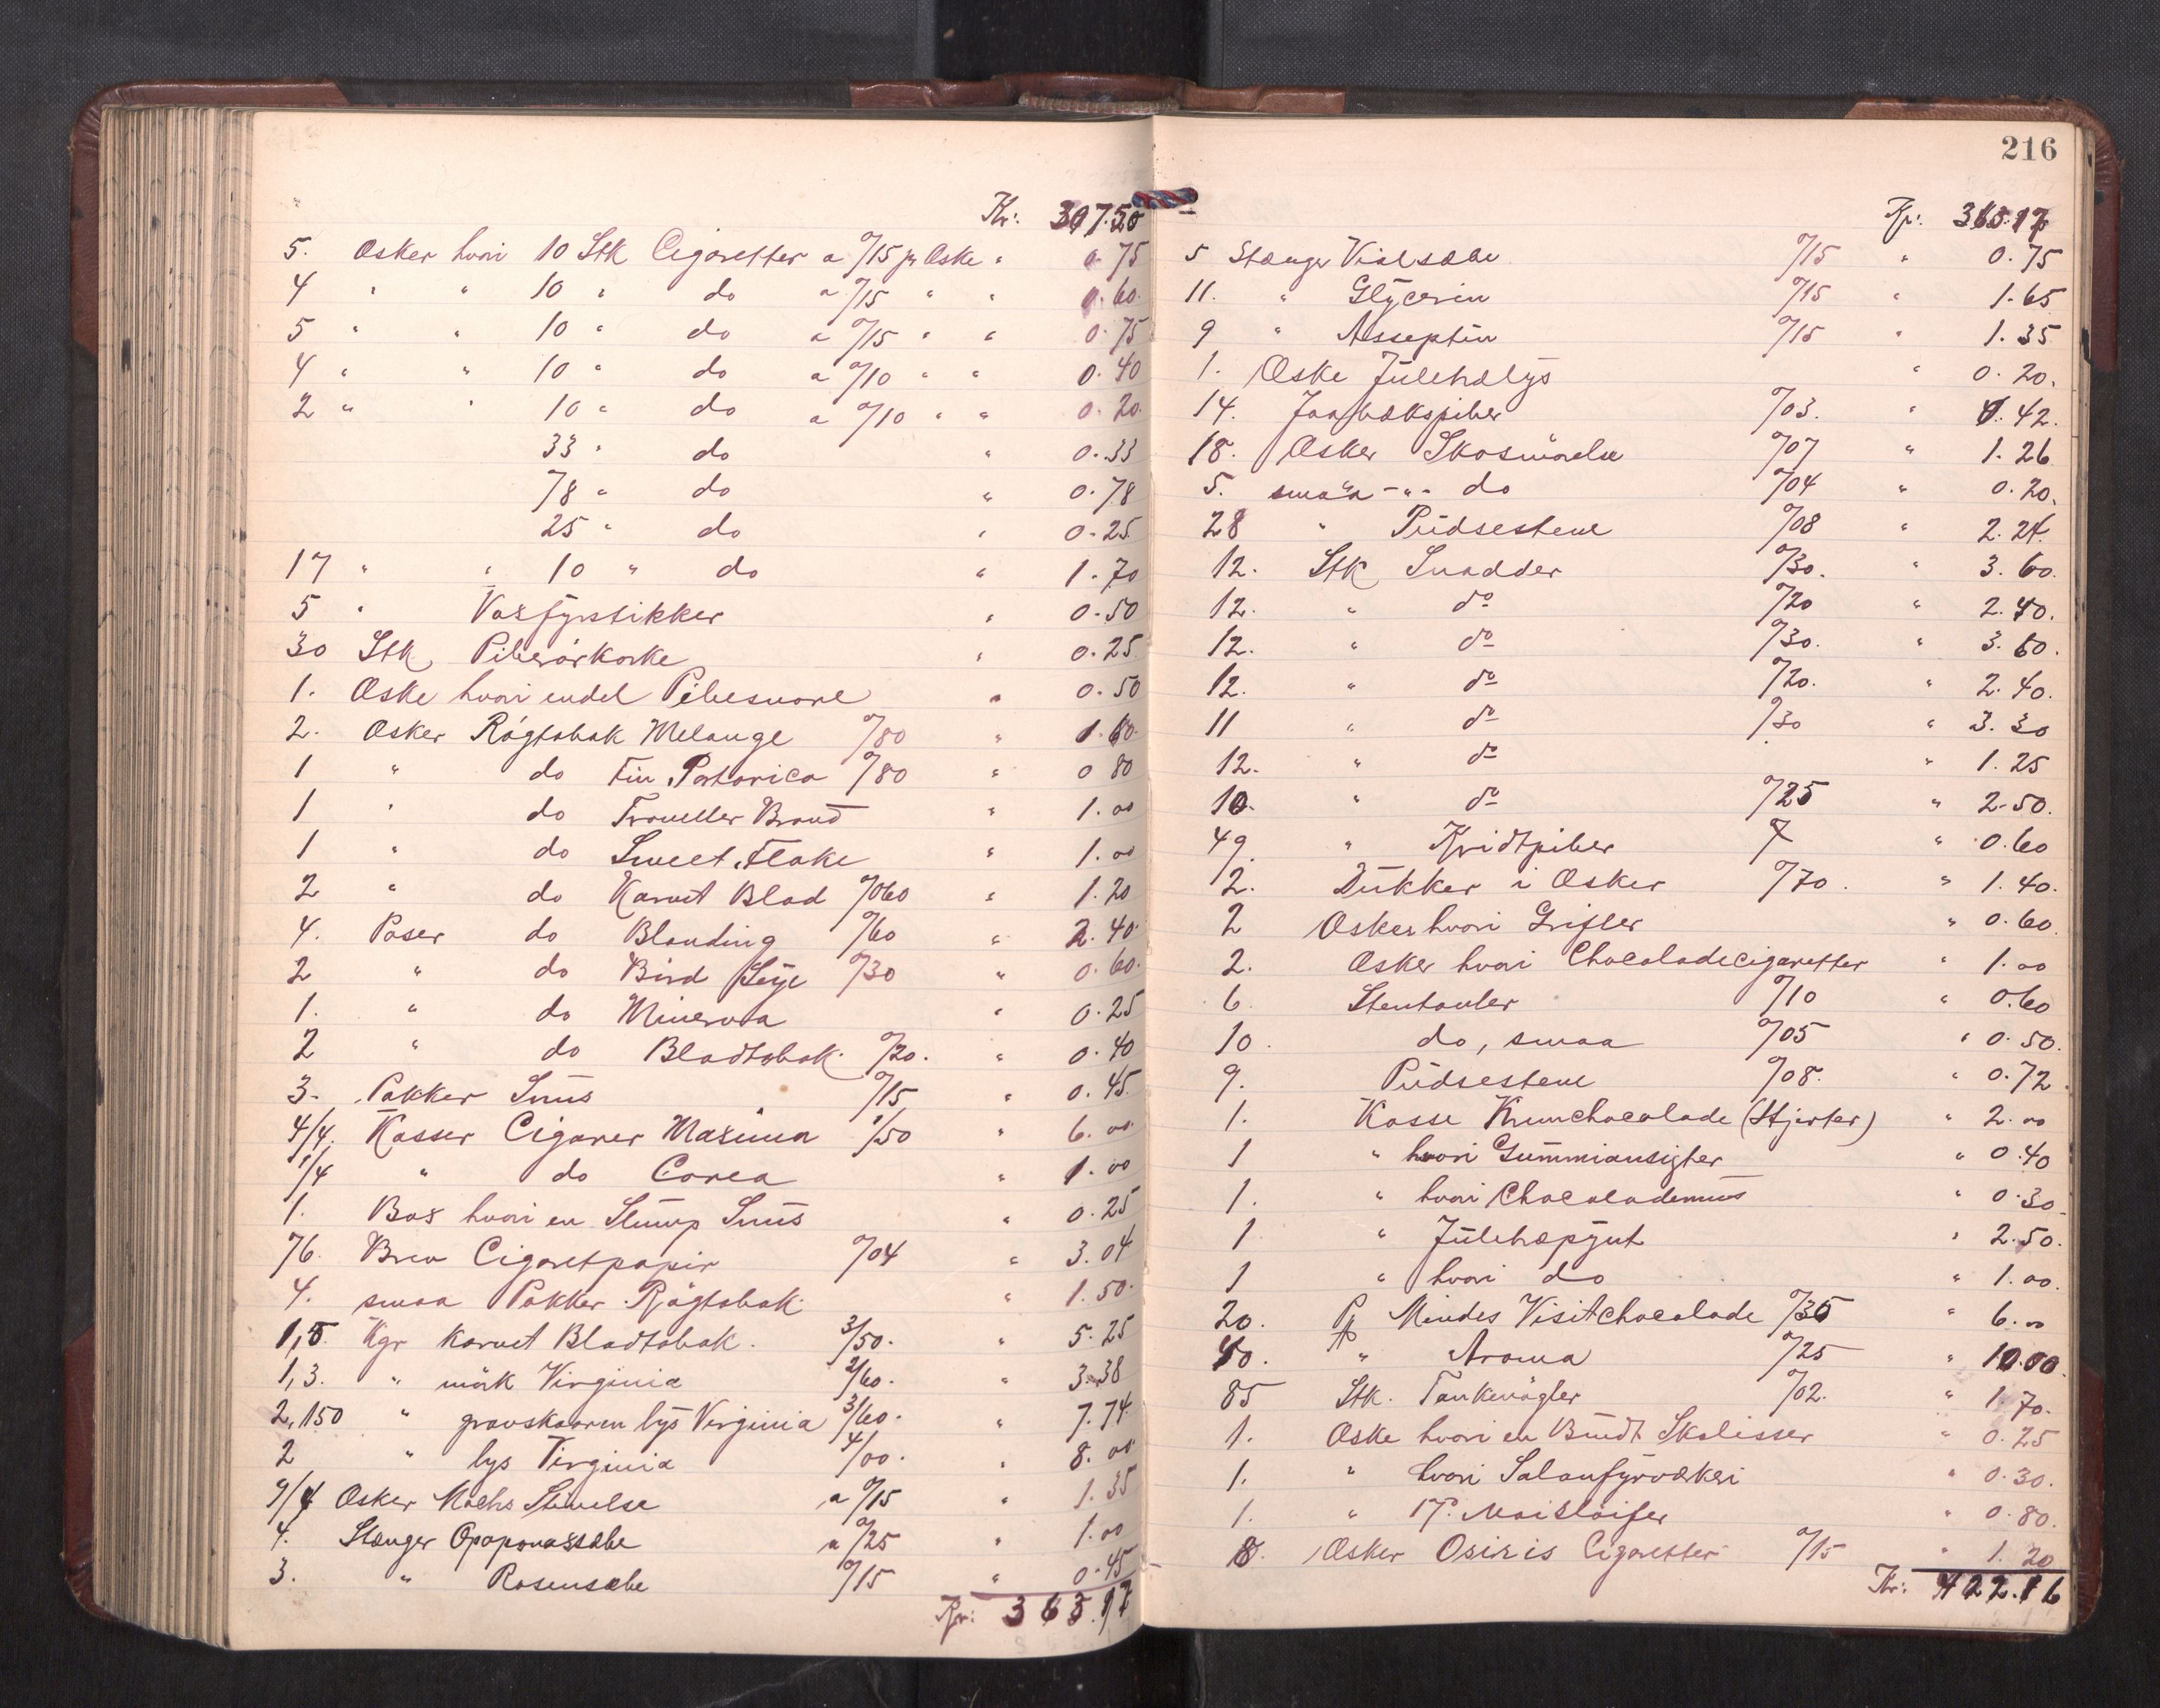 Kr. 307.50
5. Æsker hvori 10 Stk Cigaretter a 0/15 pr Æske " 0.75
4 " " 10 " do a 0/15 " " 0.60
5 " " 10 " do a 0/15 " " 0.75
4 " " 10 " do a 0/10 " " 0.40
2 " " 10 " do a 0/10 " " 0.20
33 " do " 0.33
78 " do " 0.78
25 " do " 0.25
17 " " 10 " do " 1.70
5 " Voxfyrstikker " 0.50
30 Stk Piberörkorke " 0.25
1. Æske hvori endel Pibesnore " 0.50
2. Æsker Rögtobak Melange 0/80 " 1.60
1 " do Fin Portorico 0/80 " 0 80
1 " do Traveller Brand " 1.00
1 " do Sweet Flake " 1.00
2 " do Karvet Blad 0/060 " 1.20
4. Poser do Blanding 0/60 " 2.40
2 " do Bird Eeye 0/30 " 0.60
1. " do Minerva " 0.25
2 " do Bladtobak 0/20. " 0.40
3. Pakker Snus 0/15 " 0.45
4/4. Kasser Cigarer Maxima 1/50 " 6.00
1/4 " do Corea " 1.00
1. Box hvori en Slump Snus " 0.25
76. Brev Cigaretpapir 0/04 " 3.04
4. smaa Pakker Rögtobak " 1.50
1,5 Kgr Karvet Bladtobak. 3/50. " 5.25
1,3. " mörk Virginia 2/60. " 3.38
2,150 " grovskaaren lys Virginia 3/60. " 7.74
2 " lys Virginia 4/00. " 8.00
9/4 Æsker Macks Stivelse a 0/15 " 1.35
4. Stænger Opoponaxsæbe a 0/25 " 1.00
3. " Rosensæbe 0/15 " 0.45
Kr: 363.97
216
Kr: 363.97
5 Stænger Violsæbe 0/15 " 0.75
11. " Glycerin 0/15 " 1.65
9 " Asseptin 0/15 " 1.35
1. Æske Juletrælys " 0.20.
14. Jaabækspiber 0/03. " 0.42.
18. Æsker Skosmörelse 0/07 " 1.26
5. smaa -"- do 0/04 " 0.20.
28 " Pudsestene 0/08 " 2.24.
12. Stk Snadder 0/30. " 3.60.
12. " do 0/20 " 2.40.
12. " do 0/30. " 3.60.
12. " do 0/20. " 2.40.
11 " do 0/30 " 3.30
12. " do " 1.25
10. " do 0/25 " 2.50.
49. " Kridtpiber " 0.60
2. Dukker i Æsker 0/70. " 1.40.
2 Æsker hvori Grifler " 0.60.
2. Æsker hvori Chocoladecigaretter " 1.00
6. Stentavler 0/10 " 0.60
10. do, smaa 0/05 " 0.50.
9. Pudsestene 0/08. " 0.72.
1. Kasse Krumchocolade (Hjerter) " 2.00
1 " hvori Gummiansigter " 0.40
1. " hvori Chocolademus " 0.30
1 " Juletræpynt " 2.50.
1 " hvori do " 1.00.
20. Pk Mindes Visitchocolade 0/30 " 6.00
40. " Aroma 0/25 " 10.00.
85 Stk. Tankenögler 0/02. " 1.70.
1. Æske hvori en Bundt Skolisser " 0.25
1. " hvori Salonfyrværkeri " 0.30.
1. " 0.80.
8. Æsker Osiris Cigaretter 0/15 " 1.20
Kr: 422.16